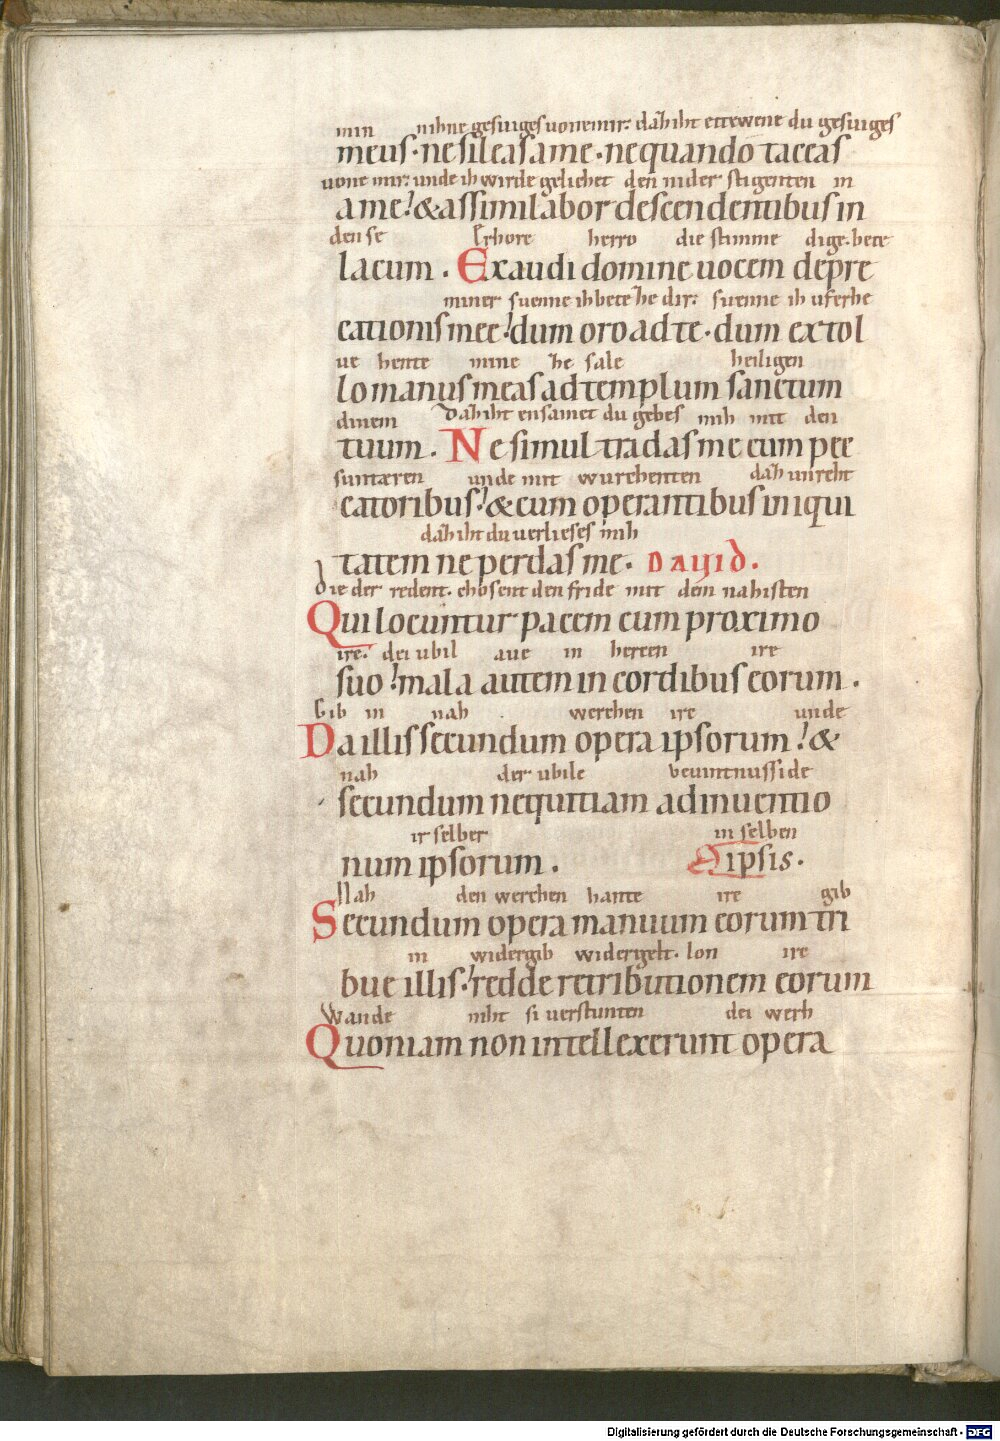 min nihne gesuiges uonemir: dah iht ettewene du gesuiges
meus · ne sileas a me · ne quando taceas
uone mir: unde ih wirde gelichet den nider stigenten in
a me? & assimilabor descendentibus in
den se Erhore herro die stimme dige. bete
lacum . Exaudi domine uocem depre
miner suenne ih bete he dir: suenne ih ufer he
cationis mee? dum oro ad te · dum extol
ue hente mine he sale heiligen
lo manus meas ad templum sanctum
dinem dah iht ensamet du gebes mih mit den
tuum . Ne simul tradas me cum pec
suntæren unde mit wurchenten dah unreht
catoribus? & cum operantibus iniqui
dah iht du uerlieses mih
tatem ne perdas me. DAUID.
die der redent. chosent den fride mit dem nahisten
Qui locuntur pacem cum proximo
ire. dei ubil aue in hercen ire
suo? mala autem in cordibus eorum .
Gib in nah werchen ire unde
Da illis secundum opera ipsorum? &
nah der ubile
secundum nequitiam adinuentio
ir selber in selben
num ipsorum . ipsis.
Nah den werchen hante ire gib
Secundum opera manuum eorum tri
in widergib widergelt. lon ire
bue illis? redde retributionem eorum
Wande niht si uerstunten dei werh
Quoniam non intellexerunt opera
Digitalisierung gefördert durch die Deutsche Forschungsgemeinschaft - DFG